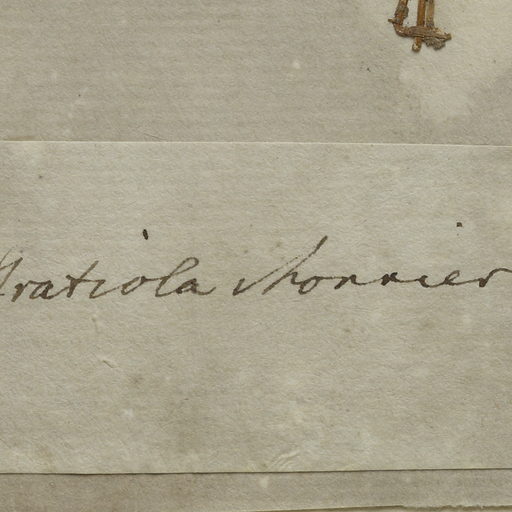 Gratiola Monnier